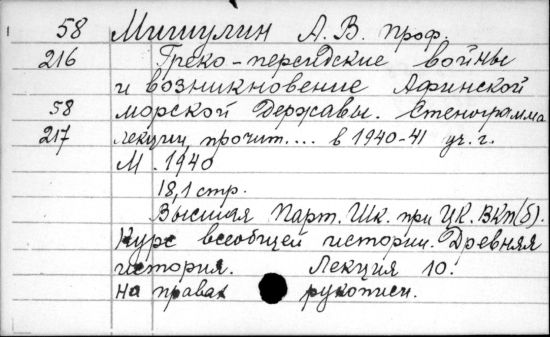 58 Мишулин А. В. проф.
216 Греко-персидские войны
и возникновение Афинской
58 морской Державы. Стенограмма
217 лекции, прочит.... в 1940-41 уч. г.
М. 1940
18,1 стр.
Высшая Парт. Шк. при ЦК. ВКП(б).
Курс всеобщей истории. Древняя
история. Лекция 10.
На правах рукописи.